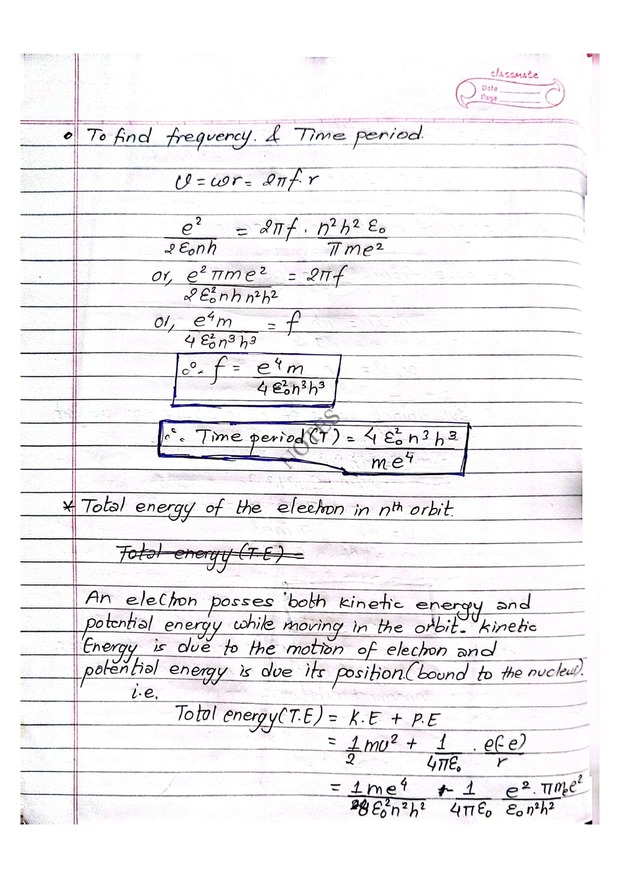 classmate
Date
Page
To find frequency. & Time period.
v = ωr = 2πf.r
e²/2ε₀nh = 2πf . n²h²ε₀/πme²
or, e²πme²/2ε₀²nh n²h² = 2πf
or, e⁴m/4ε₀²n³h³ = f
∴ f = e⁴m/4ε₀²n³h³
∴ Time period(T) = 4ε₀²n³h³/me⁴
NOTES
* Total energy of the electron in nth orbit.
Total energy (T.E) =
An electron posses both kinetic energy and
potential energy while moving in the orbit. kinetic
Energy is due to the motion of electron and
potential energy is due its position.(bound to the nucleus).
i.e.
Total energy(T.E) = K.E + P.E
= 1/2 mv² + 1/4πε₀ . e(-e)/r
= 1me⁴/8ε₀²n²h² - 1/4πε₀ e².πme²/ε₀n²h²